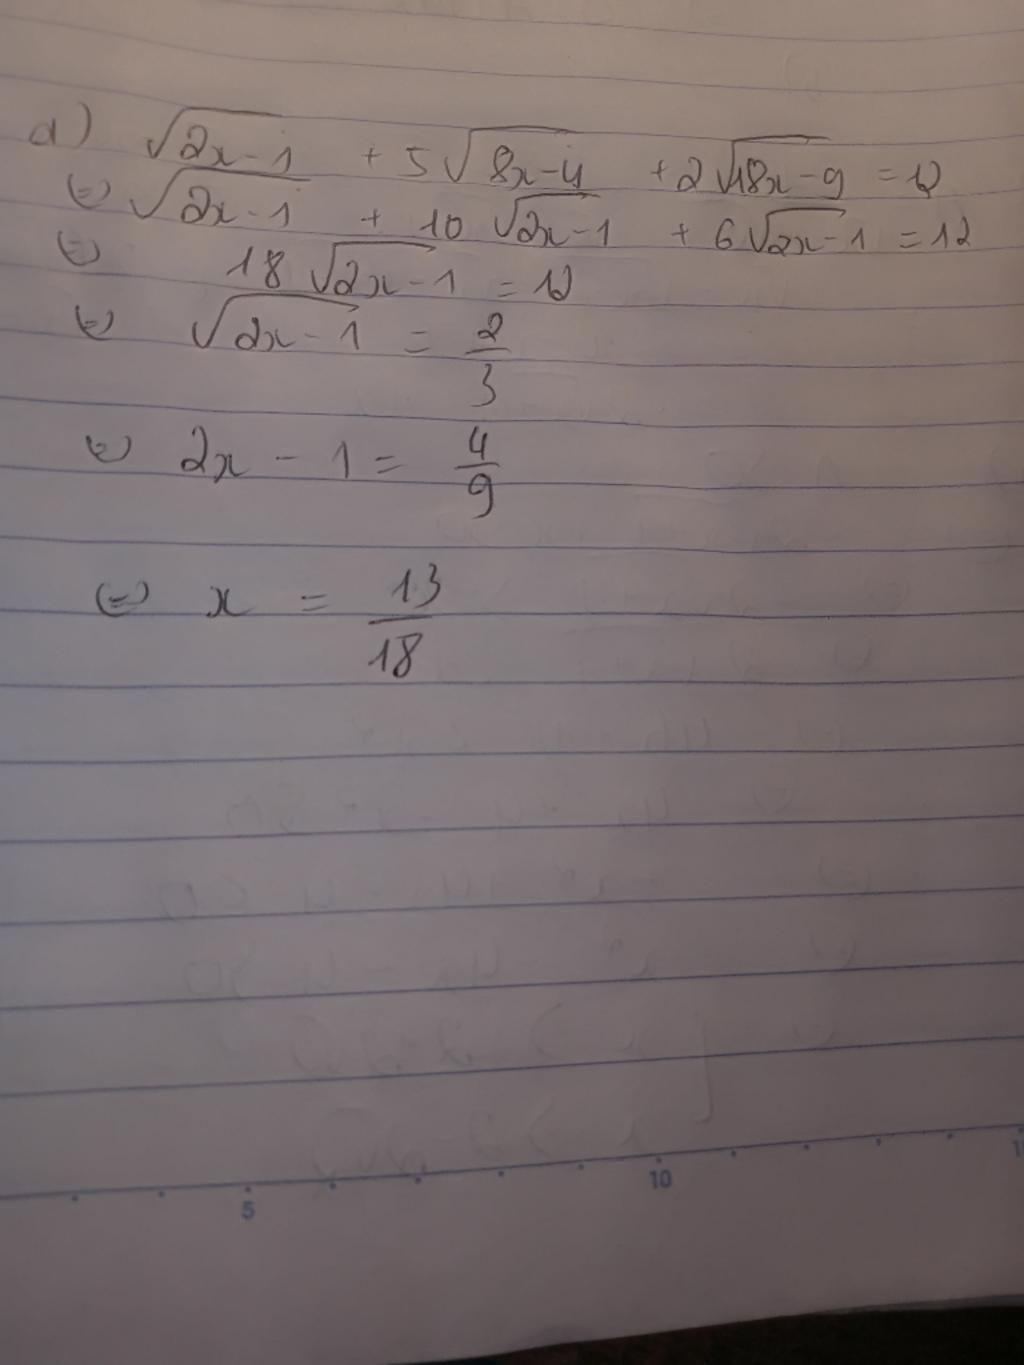 a) √2x-1 + 5√8x-4 + 2√18x-9 = 12
(=) √2x-1 + 10 √2x-1 + 6√2x-1 = 12
(=) 18 √2x-1 = 12
(=) √2x-1 = 2/3
(=) 2x - 1 = 4/9
(=) x = 13/18
5 10